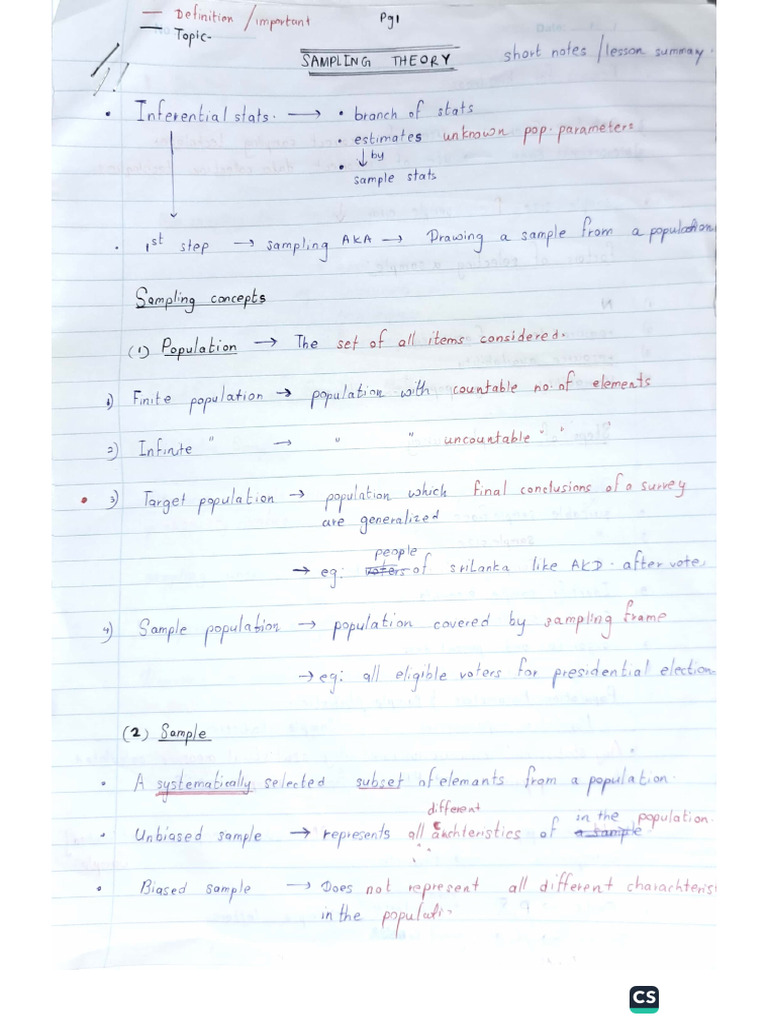 — Definition /important
— Topic-
Pg1
SAMPLING THEORY
short notes /lesson summary.
• Inferential stats. → • branch of stats
• estimates unknown pop. parameters
↓ by
• sample stats
• 1st step → sampling AKA → Drawing a sample from a population
Sampling concepts
(1) Population → The set of all items considered.
1) Finite population → population with countable no. of elements
2) Infinite " → " " uncountable " " "
• 3) Target population → population which final conclusions of a survey
are generalized
→ eg: people voters of srilanka like AKD. after vote
4) Sample population → population covered by sampling frame
→ eg: all eligible voters for presidential election
(2) Sample
• A systematically selected subset of elemants from a population.
• Unbiased sample → represents all different chachteristics of a sample in the population.
• Biased sample → Does not represent all different charachteris
in the populati.
CS